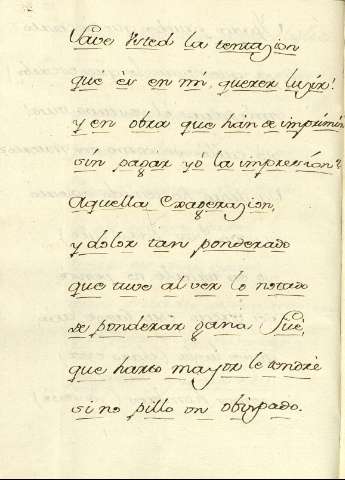 Save Usted la tentazion
que és en mi, querer luzir!
y en obra que hán de imprimir
sin pagar yó la impression?
Aquella Exagerazion,
y dolor tan ponderado
que tuve al ver lo notado
de ponderar gana fué,
que harto mayor le tendré
si no pillo un obispado.